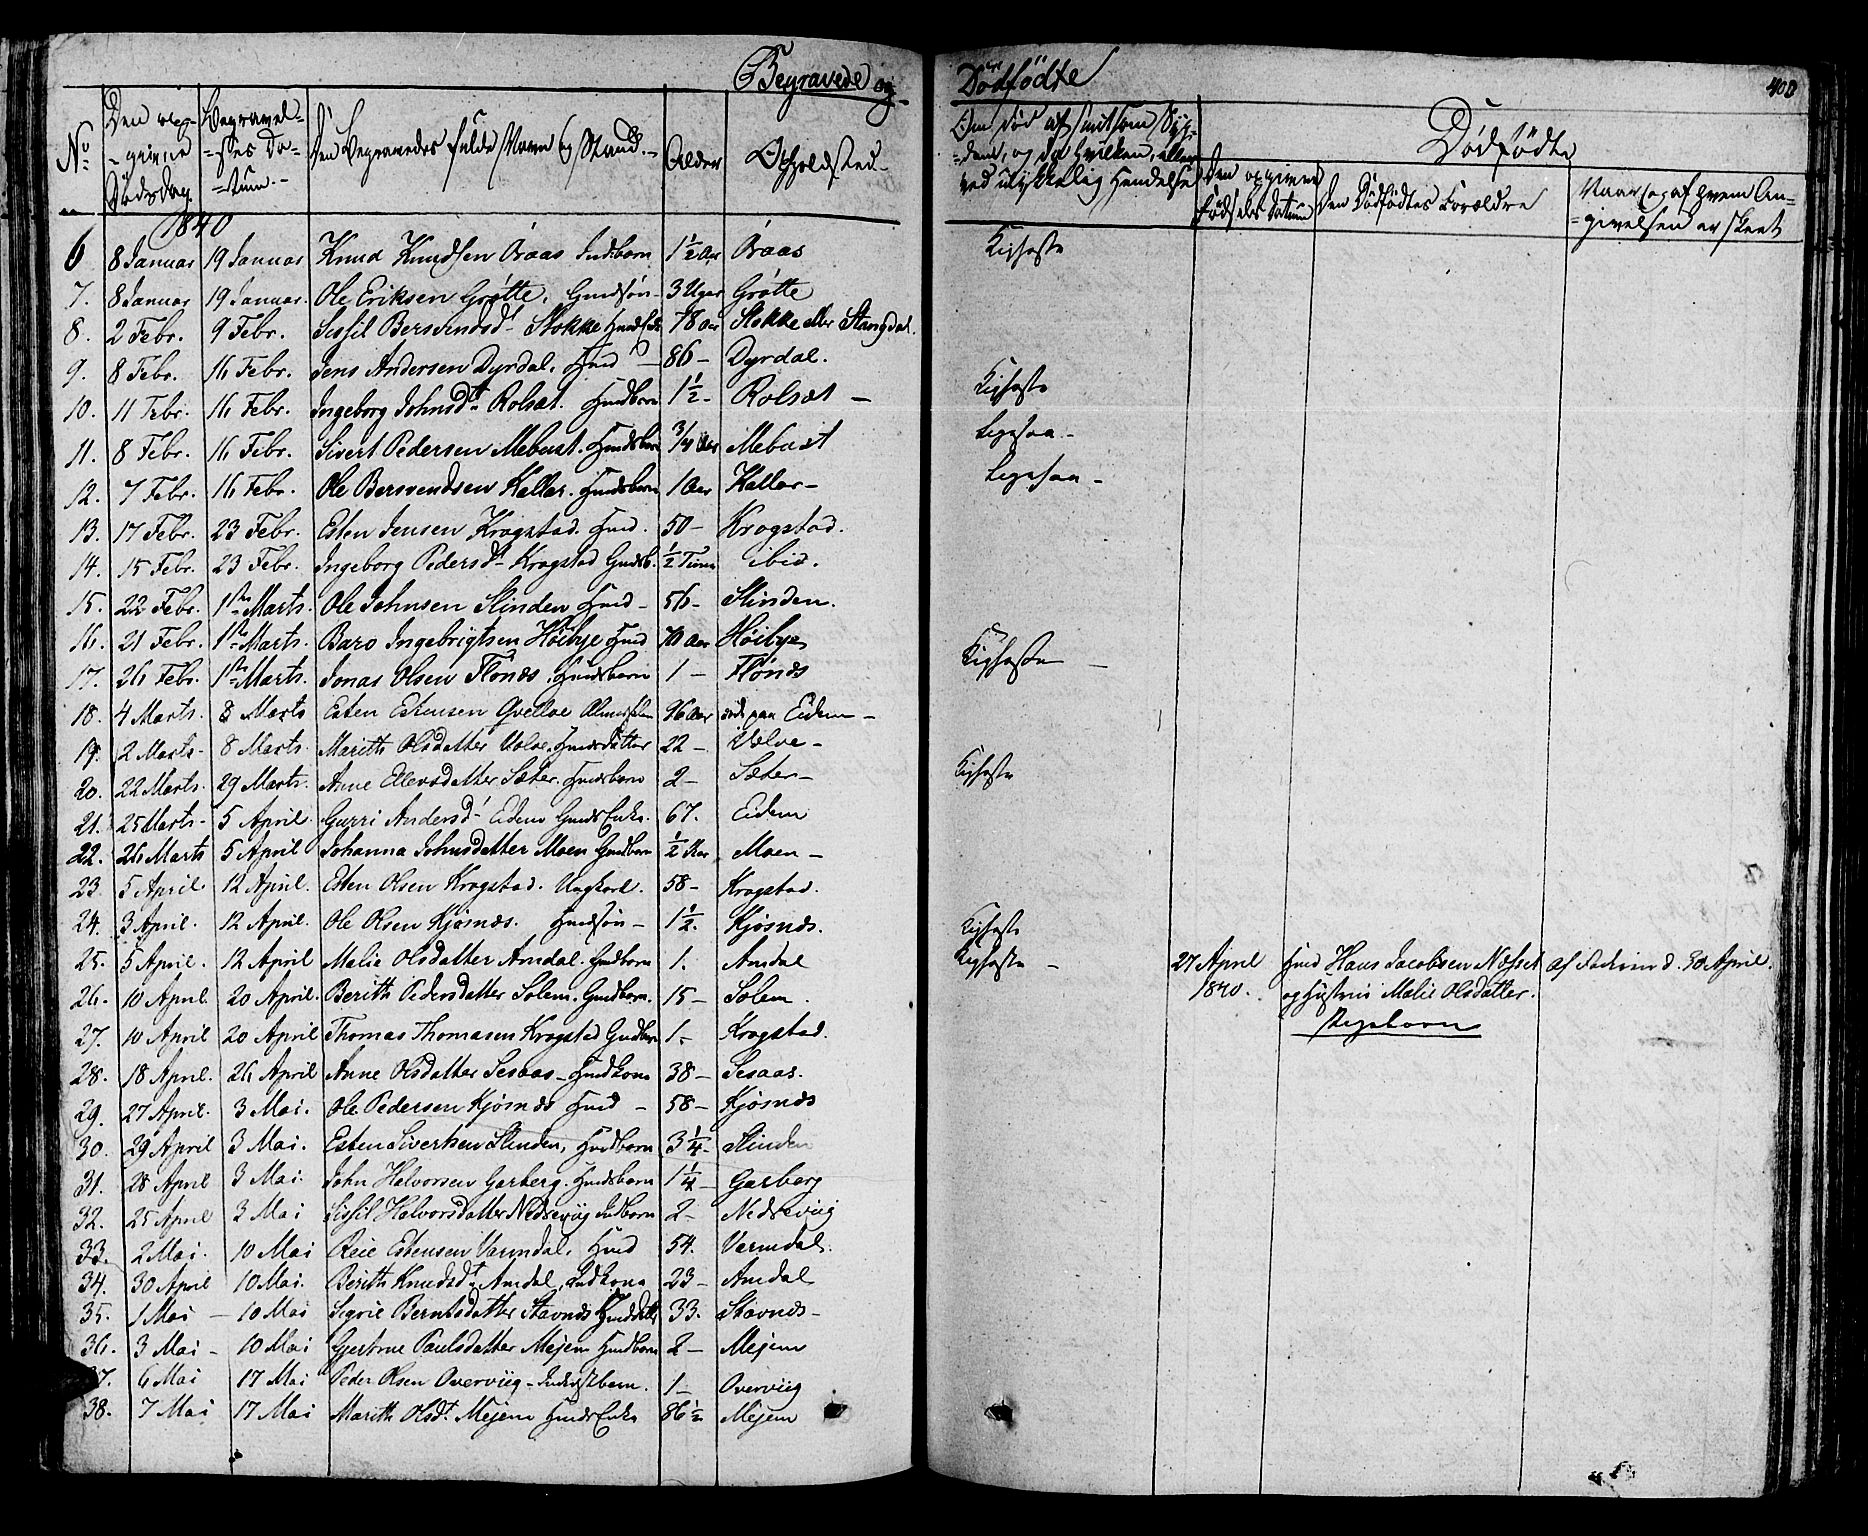 Begravede og Dödfödte
408
No
Den op-
givne
Dödsdag.
Begravel-
-ses Da-
-tum.-
Den Begravedes fulde Navn og Stand.-
Alder
Opholdsted-
Om död af smitsom Syg-
-dom, og da hvilken, eller
ved ulykkelig Hendelse
Dödfödte
Den opgivne
Födsels Datum
Den Dödfödtes Forældre
Naar og af hvem An-
-givelsen er skeet
1840
6 8 Januar 19 Januar Knud Knudsen Öraas Indbarn 1½ Aar Öraas Kighoste
7. 8 Januar 19 Januar. Ole Eriksen Grötte, Gmdsön- 3 Uger Grötte
8. 2 Febr. 9 Febr. Sissil Bersvendsd- Stokke 78 Aar Stokke eller Stangdal.
9. 8 Febr. 16 Febr. Jens Andersen Dyrdal. Gmd - 86- Dyrdal. Kighoste
10. 11 Febr. 16 Febr. Ingeborg Johnsdt Rolset. Gmdbarn 1½- Rolset - Ligesaa-
11. 8 Febr. 16 Febr. Sivert Pedersen Mebust. Gmdsbarn 3/4 Aar Mebust
12. 7 Febr. 16 Febr. Ole Bersvendsen Kallar. Gmdsbarn 1 Aar Kallar- Ligesaa -
13. 17 Febr. 23 Febr. Esten Jensen Krogstad. Gmd. 50- Krogstad.
14. 15 Febr. 23 Febr. Ingeborg Pedersdt Krogstad Gmdsb. ½ Time ibid.
15. 22 Febr. 1ste Marts. Ole Johnsen Slinden Gmd- 56- Slinden.
16. 21 Febr. 1ste Marts. Baro Ingebrigtsen Höibye Gmd 70 Aar Höibye
17. 26 Febr. 1ste Marts. Jonas Olsen Flönæs. Gmdsbarn 1 - Flönæs Kighoste -
18. 4 Marts. 8 Marts Esten Estensen Qvelloe 96 Aar död paa Eidem-
19. 2 Marts- 8 Marts. Marith Olsdatter Uelve. Gmdsdatter 22 - Uelve-
20. 22 Marts. 29 Marts. Anne Ellevsdatter Sæter. Gmdsbarn 2- Sæter- Kighoste
21. 25 Marts- 5 April. Gurri Andersd- Eidem Gmds Enke. 67. Eidem
22. 26 Marts 5 April Johanna Johnsdatter Moen Gmdbarn ½ Aar Moen-
23. 5 April. 12 April. Esten Olsen Krogstad. Ungkarl. 58- Krogstad.
24. 3 April. 12 April. Ole Olsen Kjösnæs. Gmdsön- 1½. Kjösnæs. Kighoste
25. 5 April. 12 April Malie Olsdatter Amdal. Gmdbarn 1. Amdal Kighoste -
27 April Gmd Hans Jacobsen Næsset af Faderen d. 30 April.
1840. og Hustrue Malie Olsdatter.
Pigebarn
26. 10 April. 20 April. Berith Pedersdatter Solem. Gmdbarn. 15- Solem.
27. 10 April 20 April Thomas Thomasen Krogstad Gmdbarn 1- Krogstad.
28. 18 April. 26 April Anne Olsdatter Sesaas- Gmdkone 38- Sesaas.
29. 27 April. 3 Mai. Ole Pedersen Kjösnæs Gmd - 58- Kjösnæs
30. 29 April 3 Mai. Esten Sivertsen Slinden, Gmdbarn 3¼- Slinden
31. 28 April 3 Mai. John Halvorsen Garberg. Gmdsbarn 1¼- Garberg
32. 25 April 3 Mai Sissil Halvorsdatter Nedreviig Indbarn 2- Nedreviig
33. 2 Mai. 10 Mai Reie Estensen Varmdal, Gmd 54. Varmdal.
34. 30 April 10 Mai. Berith Knudsdt Amdal, Indkone 23- Amdal
35. 1 Mai - 10 Mai Sigrie Berntsdatter Stavnæs Gmdsdatt 33. Stavnæs-
36. 3 Mai - 10 Mai Gjertrue Paulsdatter Mejem Gmdbarn 2- Mejem
37. 6 Mai 17 Mai Peder Olsen Overviig- 1- Overviig
38. 7 Mai 17 Mai Marith Olsdt. Mejem Gmds Enke 86½ Mejem